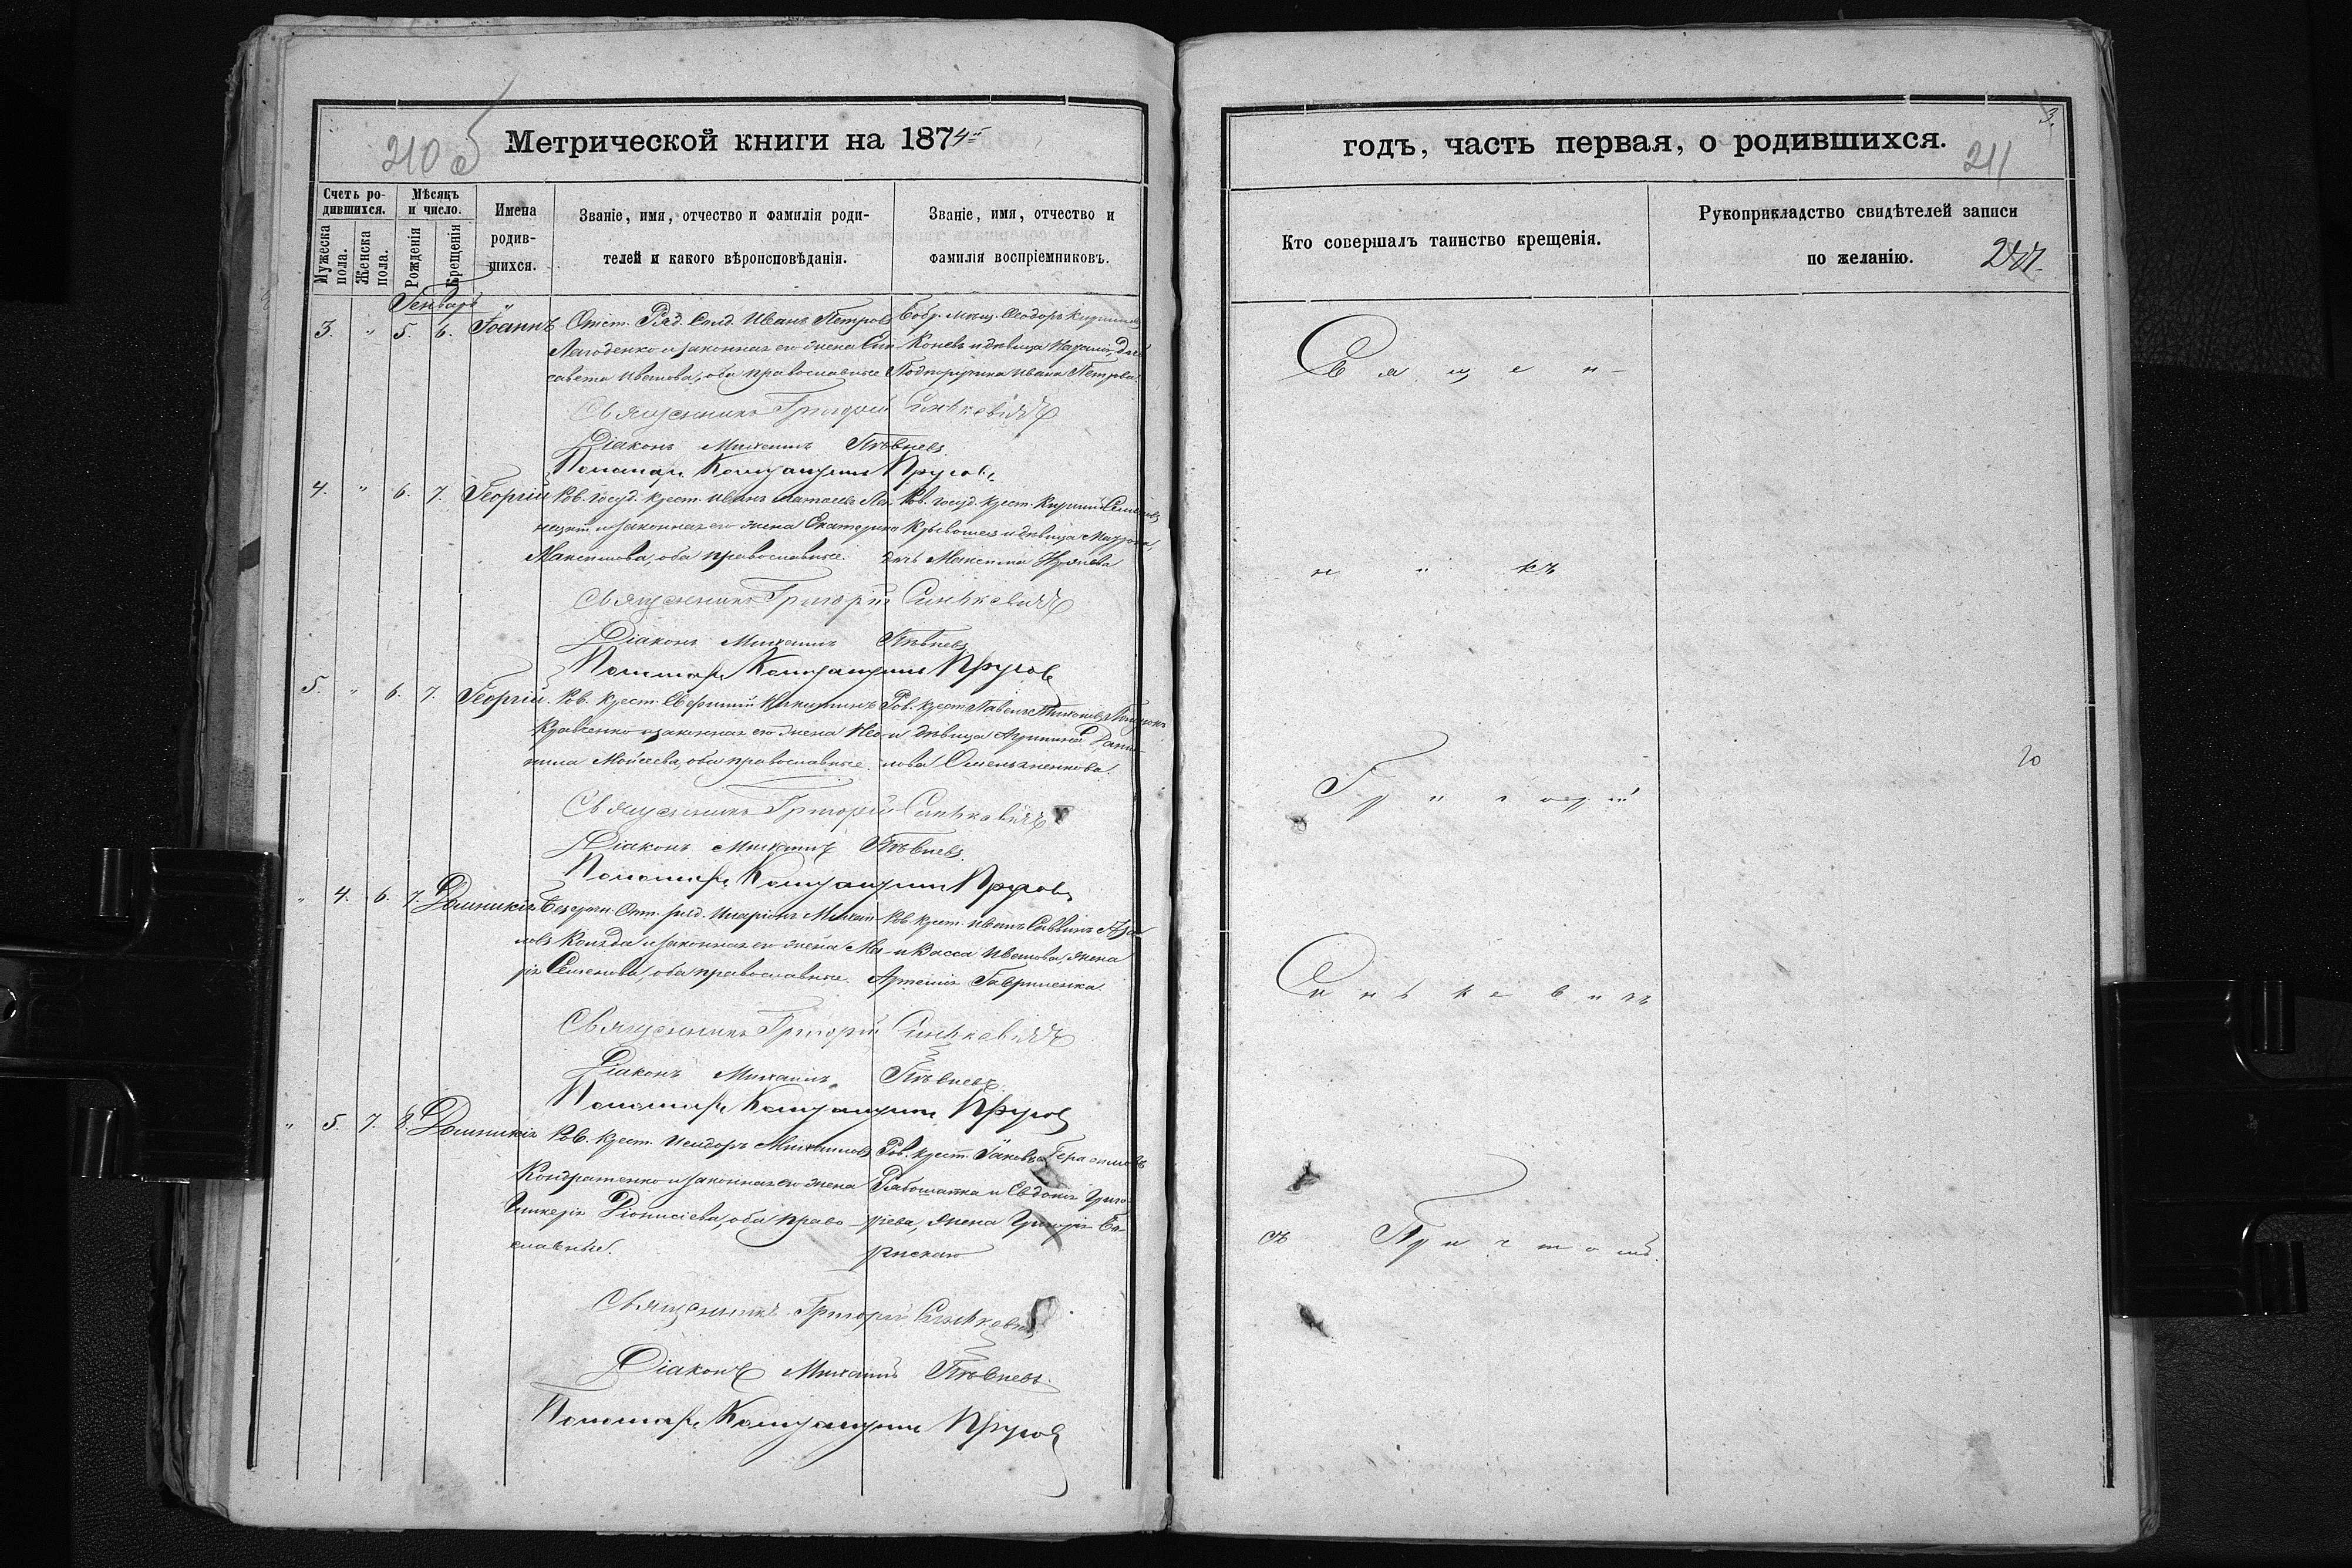 210 об
Метрической книги на 1874й
Счетъ ро-
дившихся.
Мѣсяцъ
и число.
Мужеска
пола.
Женска
пола.
Рожденія
Крещенія
Имена
родив-
шихся.
Званіе, имя, отчество и фамилія роди-
телей и какого вѣроисповѣданія.
Званіе, имя, отчество и
фамилія воспріемниковъ.
Генварь
3. " 5. 6. Іоаннъ Отст. Ряд. Солд. Иванъ Петровъ
Лагоденко и законная его жена Ели-
савета Иванова, оба православные
Бобр. мѣщ. Ѳеодоръ
Коневъ и дѣвица
Подпоручика Ивана Петрова.
Священникъ Григорій Синькевичъ
Діаконъ Михаилъ Пѣвневъ
Пономарь Константинъ Пругов
4. " 6. 7. Георгій Ров. госуд. крест. Иванъ
и законная его жена Екатерина
Максимова, оба православные.
Ров. госуд. крест. Кириллъ Семеновъ
Крывошея и дѣвица
дочь Максима
Священникъ Григорій Синькевичъ
Діаконъ Михаилъ Пѣвневъ
Пономарь Константинъ Пругов
5. " 6. 7. Георгій. Ров. крест. Никитинъ
Кравченко и законная его жена Нео-
нила Мойсеева, оба православные.
Ров. крест. Павелъ
и дѣвица Агрипина Дани-
лова Омельяненкова.
Священникъ Григорій Синькевичъ
Діаконъ Михаилъ Пѣвневъ
Пономарь Константинъ Пругов
" 4. 6. 7. Домникія Безсрочн. Отп. рид. Иларіонъ Михаи-
ловъ Колзда и законная его жена Ма-
рія Семенова, оба православные.
Ров. крест. Иванъ Саввинъ
и Васса Иванова, жена
Артемія Гавриленка.
Священникъ Григорій Синькевичъ
Діаконъ Михаилъ Пѣвневъ
Пономарь Константинъ Пругов
" 5. 7. 8. Домникія Ров. крест. Исидоръ Михаиловъ
Кондратенко и законная его жена
Гликерія Діонисіева, оба право-
славные.
Ров. крест. Іаковъ Герасимовъ
Рабошапка и Евдокія Григо-
рьева, жена Григорія Бо-
рискаго
Священникъ Григорій Синькевичъ
Діаконъ Михаилъ Пѣвневъ
Пономарь Константинъ Пругов
3.
годъ, часть первая, о родившихся.
211
Кто совершалъ таинство крещенія.
Рукоприкладство свидѣтелей записи
по желанію.
Священ-
никъ
Григорій
20
Синькевичъ
съ Причтомъ.